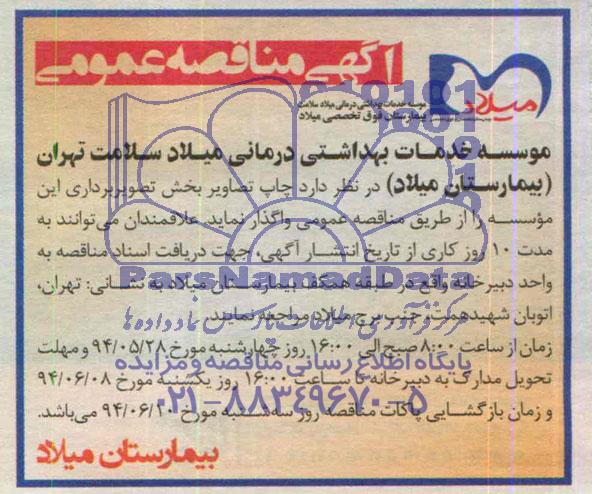 آگهی مناقصه عمومی
میلاد
موسسه خدمات بهداشتی درمانی میلاد سلامت
بیمارستان فوق تخصصی میلاد
موسسه خدمات بهداشتی درمانی میلاد سلامت تهران
(بیمارستان میلاد) در نظر دارد چاپ تصاویر بخش تصویربرداری این
مؤسسه را از طریق مناقصه عمومی واگذار نماید. علاقمندان می‌توانند به
مدت ۱۰ روز کاری از تاریخ انتشار آگهی، جهت دریافت اسناد مناقصه به
واحد دبیرخانه واقع در طبقه همکف بیمارستان میلاد به نشانی: تهران،
اتوبان شهید همت، جنب برج میلاد مراجعه نمایند.
زمان از ساعت ۸:۰۰ صبح الی ۱۶:۰۰ روز چهارشنبه مورخ ۹۴/۰۵/۲۸ و مهلت
تحویل مدارک به دبیرخانه تا ساعت ۱۶:۰۰ روز یکشنبه مورخ ۹۴/۰۶/۰۸
و زمان بازگشایی پاکات مناقصه روز سه‌شنبه مورخ ۹۴/۰۶/۲۰ می‌باشد.
بیمارستان میلاد
ParsNamadData
مرکز فرآوری اطلاعات پارس نماد داده ها
پایگاه اطلاع رسانی مناقصه و مزایده
۰۲۱-۸۸۳۴۹۶۷۰-۵